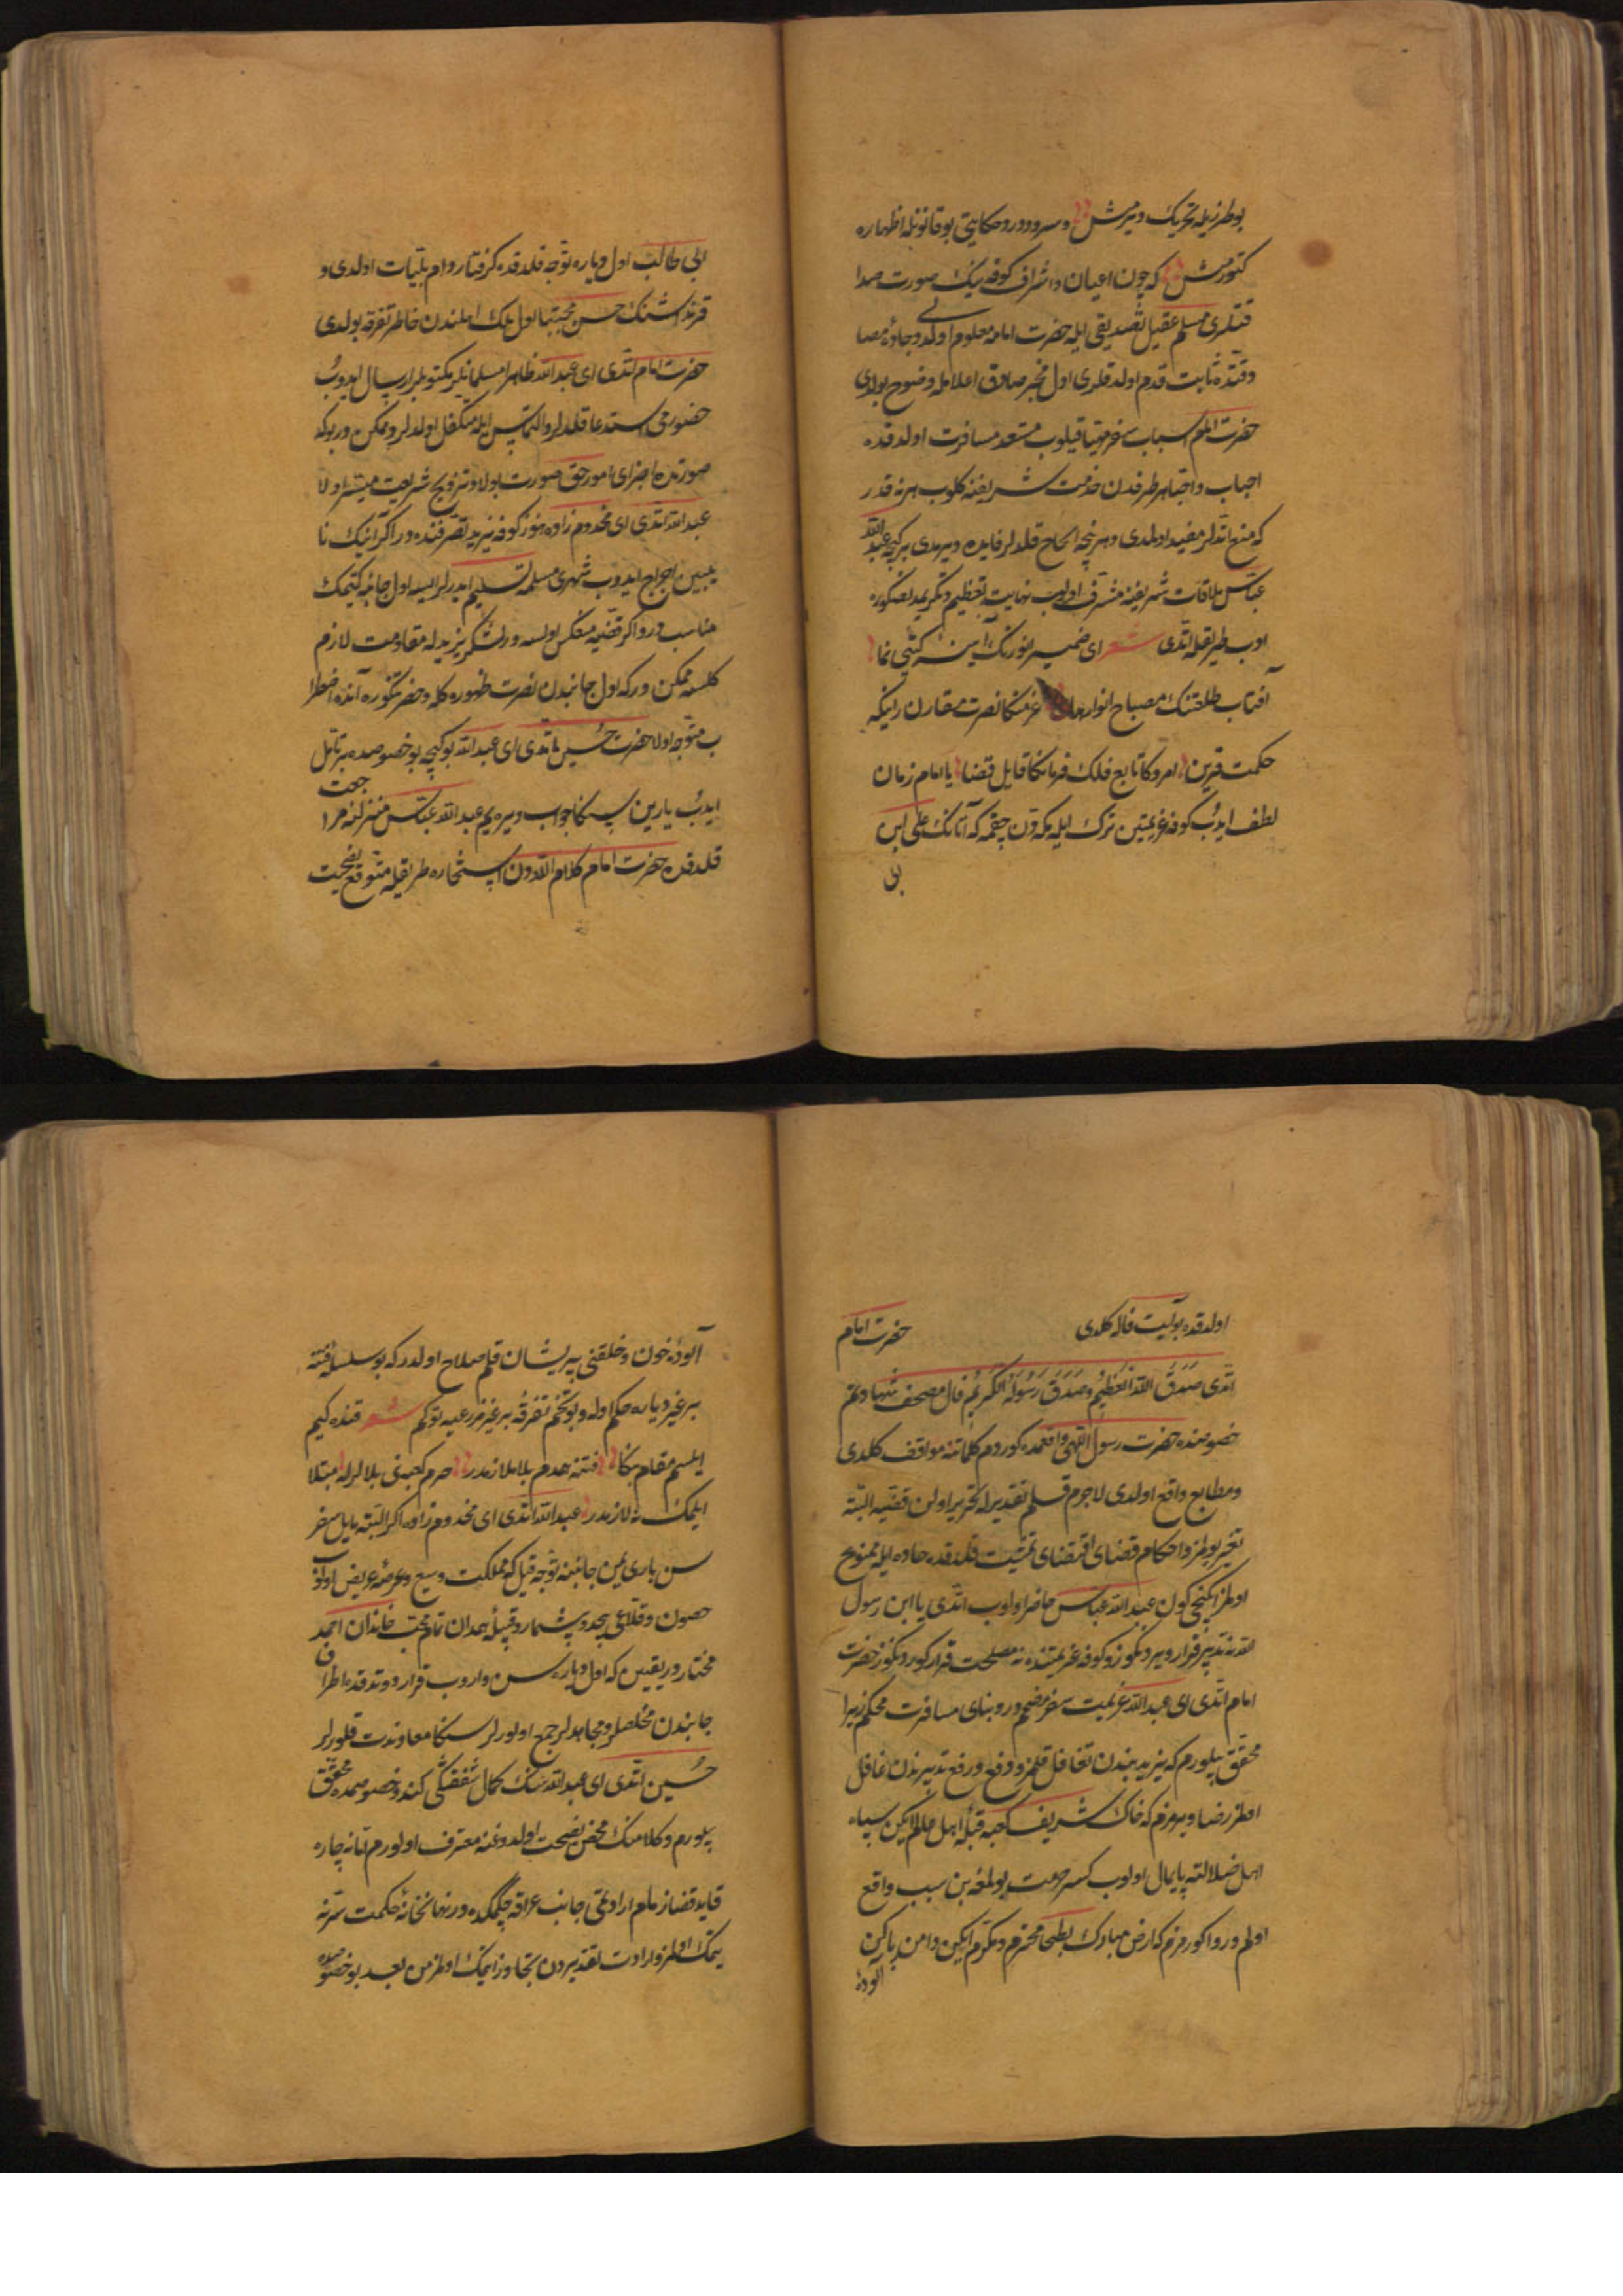 بو طرزیله تحریك ویرمش و سرود درد حكایتی بو قانونله اظهاره
كتورمش كه چون اعیان و اشراف كوفه نیك صورت صدا
قتلری مسلم عقیل تصدیقی ایله حضرت امامه معلوم اولدی و جادهٔ مصا
دقتده ثابت قدم اولدقلری اول مخبر صادق اعلامله وضوح بولدی
حضرت امام اسباب سفر مهیا قیلوب مستعد مسافرت اولدقده
احباب و احبا هر طرفدن خدمت شریفنه كلوب هر نه قدر
كه منع اتدلر مفید اولمدی و هر نیچه الحاح قلدلر فایده ویرمدی بر كیجه عبد الله
عباس ملاقات شریفنه مشرف اولوب نهایت تعظیم و تكریمدنصكوره
ادب طریقله اتدی شعر ای ضمیر انورنك آینهٔ كیتی نما
آفتاب طلعتنك مصباح انوار هدی عزمنكا نصرت مقارن رایكه
حكمت قرین امروكا تابع فلك فرمانكا قایل قضا یا امام زمان
لطف ایدب كوفه عزیمتین ترك ایله مكه دن چقمه كه آتانك علی ابن
بی
ابی طالب اول دیاره توجه قلدقده كرفتار دام بلیات اولدی و
قرنداشنك حسن مجتبا اول ملك اهلندن خاطر تفرقه بولدی
حضرت امام اتدی ای عبد الله ظاهرا مسلمانلر مكتوبلر ارسال ایدوب
حضورمی استدعا قلدلر و التماس ایله متكفل اولدلر و ممكن در بو كه
صورتده اجزای امور حق صورت بولا و ترویج شریعت میسر اولا
عبد الله اتدی ای مخدوم زاده هنوز كوفه یزید تصرفنده در اكر آنیك نا
یبین اخراج ایدوب شهری مسلمه تسلیم ایدرلر ایسه اول جانبه كیتمك
مناسب در و اكر قضیه منعكس اولسه و لشكر یزیدله مقاومت لازم
كلسه ممكن در كه اول جانبدن نصرت ظهوره كله و حضرتكوره آنده اضطرا
ب متوجه اولا حضرت حسین اتدی ای عبد الله بو كیچه بو خصوصده بر تامل
ایدب یارین سكا جواب ویره یم عبد الله عباس منزلنه مراجعت
قلدقدن حضرت امام كلام الله دن استخاره طریقله متوقع نصیحت
اولدقده بو آیت فاله كلدی حضرت امام
اتدی صَدَقَ اللهُ العَظِیمُ وَصَدَقَ رَسُولَهُ الكَرِیمُ فال مصحف شهادتم
خصوصنده حضرت رسول اللهی واقعمده كوردم كلماتنه موافق كلدی
و مطابع واقع اولدی لا جرم قلم تقدیرله تحریر اولن قضیه البته
تغیر بولمز و احكام قضای اقتضای مشیت قلدقده حاده ایله ممنوع
اولمز ایكنجی كون عبد الله عباس حاضر اولوب اتدی یا ابن رسول
الله نه تدبیر قرار ویردكوز و كوفه عزیمتنده نه مصلحت قرار كوردكوز حضرت
امام اتدی ای عبد الله عزیمت سفر مصمم در و بنای مسافرت محكم زیرا
محقق بیلورم كه یزید بندن تغافل قلمز و دفع و رفع تدبیرندن غافل
اولمز رضا ویرمزم كه خاك شریف كعبه قبلهٔ اهل عالم ایكن سپاه
اهل ضلالته پایمال اولوب كسر حرمت بولمغه بن سبب واقع
اولم و روا كورمزم كه ارض مبارك بطحا محترم و مكرم ایكن دامن پاكن
آلودهٔ
آلودهٔ خون و خلقنی پریشان قلم صلاح اولدر كه بو سلسلهٔ فتنه
بر غیر دیاره چكم اوله و بو تخم تفرقه بر غیر مزرعیه توكم شعر قنده كیم
ایلسم مقام بنكا فتنه همدم بلا ملازمدر حرم كعبه نی بلالرله مبتلا
ایلمك نه لازمدر عبد الله اتدی ای مخدوم زاده اكر البته مایل سفر
سن باری یمن جانبنه توجه قیل كه مملكت وسیع و عرصهٔ عریض اولوب
حصون و قلاعی بیحد و بیشمار و قبیلهٔ همدان تمام محب خاندان احمد
مختار در یقین كه اول دیاره سن واروب قرار دوتدقده اطراف
جانبدن مخلصلر و مجاهدلر جمع اولورلر سنكا معاونت قلورلر
حسین اتدی ای عبد الله سنك كمال شفقتكی كندو خصوصمده محقق
بیلورم و كلامنك محض نصیحت اولدوغنه معترف اولورم اما نه چاره
قاید قضا زمام ارادتمی جانب عراقه چكمكده در نهانخانهٔ حكمت سرنه
یتمك اولمز و ارادت تقدیردن تجاوز ایتمك اولمز من بعد بو خصوصده